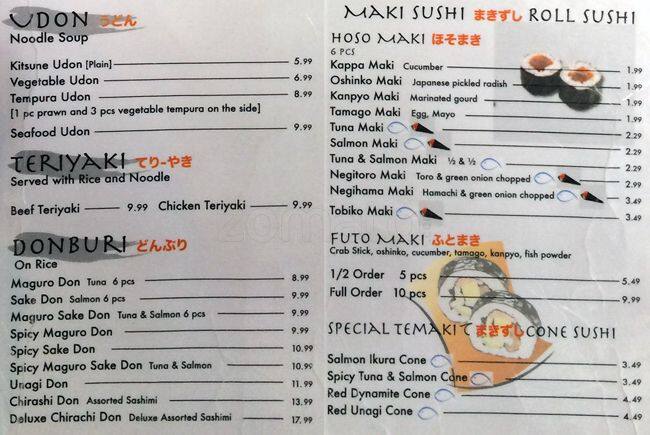 UDON うどん
Noodle Soup
Kitsune Udon [Plain] 5.99
Vegetable Udon 6.99
Tempura Udon 8.99
[1 pc prawn and 3 pcs vegetable tempura on the side]
Seafood Udon 9.99
TERIYAKI てり-やき
Served with Rice and Noodle
Beef Teriyaki 9.99 Chicken Teriyaki 9.99
DONBURI どんぶり
On Rice
Maguro Don Tuna 6 pcs 8.99
Sake Don Salmon 6 pcs 9.99
Maguro Sake Don Tuna & Salmon 6 pcs 9.99
Spicy Maguro Don 9.99
Spicy Sake Don 10.99
Spicy Maguro Sake Don Tuna & Salmon 10.99
Unagi Don 11.99
Chirashi Don Assorted Sashimi 13.99
Deluxe Chirachi Don Deluxe Assorted Sashimi 17.99
MAKI SUSHI まきずし ROLL SUSHI
HOSO MAKI ほそまき
6 PCS
Kappa Maki Cucumber 1.99
Oshinko Maki Japanese pickled radish 1.99
Kanpyo Maki Marinated gourd 1.99
Tamago Maki Egg, Mayo 1.99
Tuna Maki 2.29
Salmon Maki 2.29
Tuna & Salmon Maki ½ & ½ 2.29
Negitoro Maki Toro & green onion chopped 2.99
Negihama Maki Hamachi & green onion chopped 3.49
Tobiko Maki 3.49
FUTO MAKI ふとまき
Crab Stick, oshinko, cucumber, tamago, kanpyo, fish powder
1/2 Order 5 pcs 5.49
Full Order 10 pcs 9.99
SPECIAL TEMAKI てまきずし CONE SUSHI
Salmon Ikura Cone 3.49
Spicy Tuna & Salmon Cone 3.49
Red Dynamite Cone 4.49
Red Unagi Cone 4.49